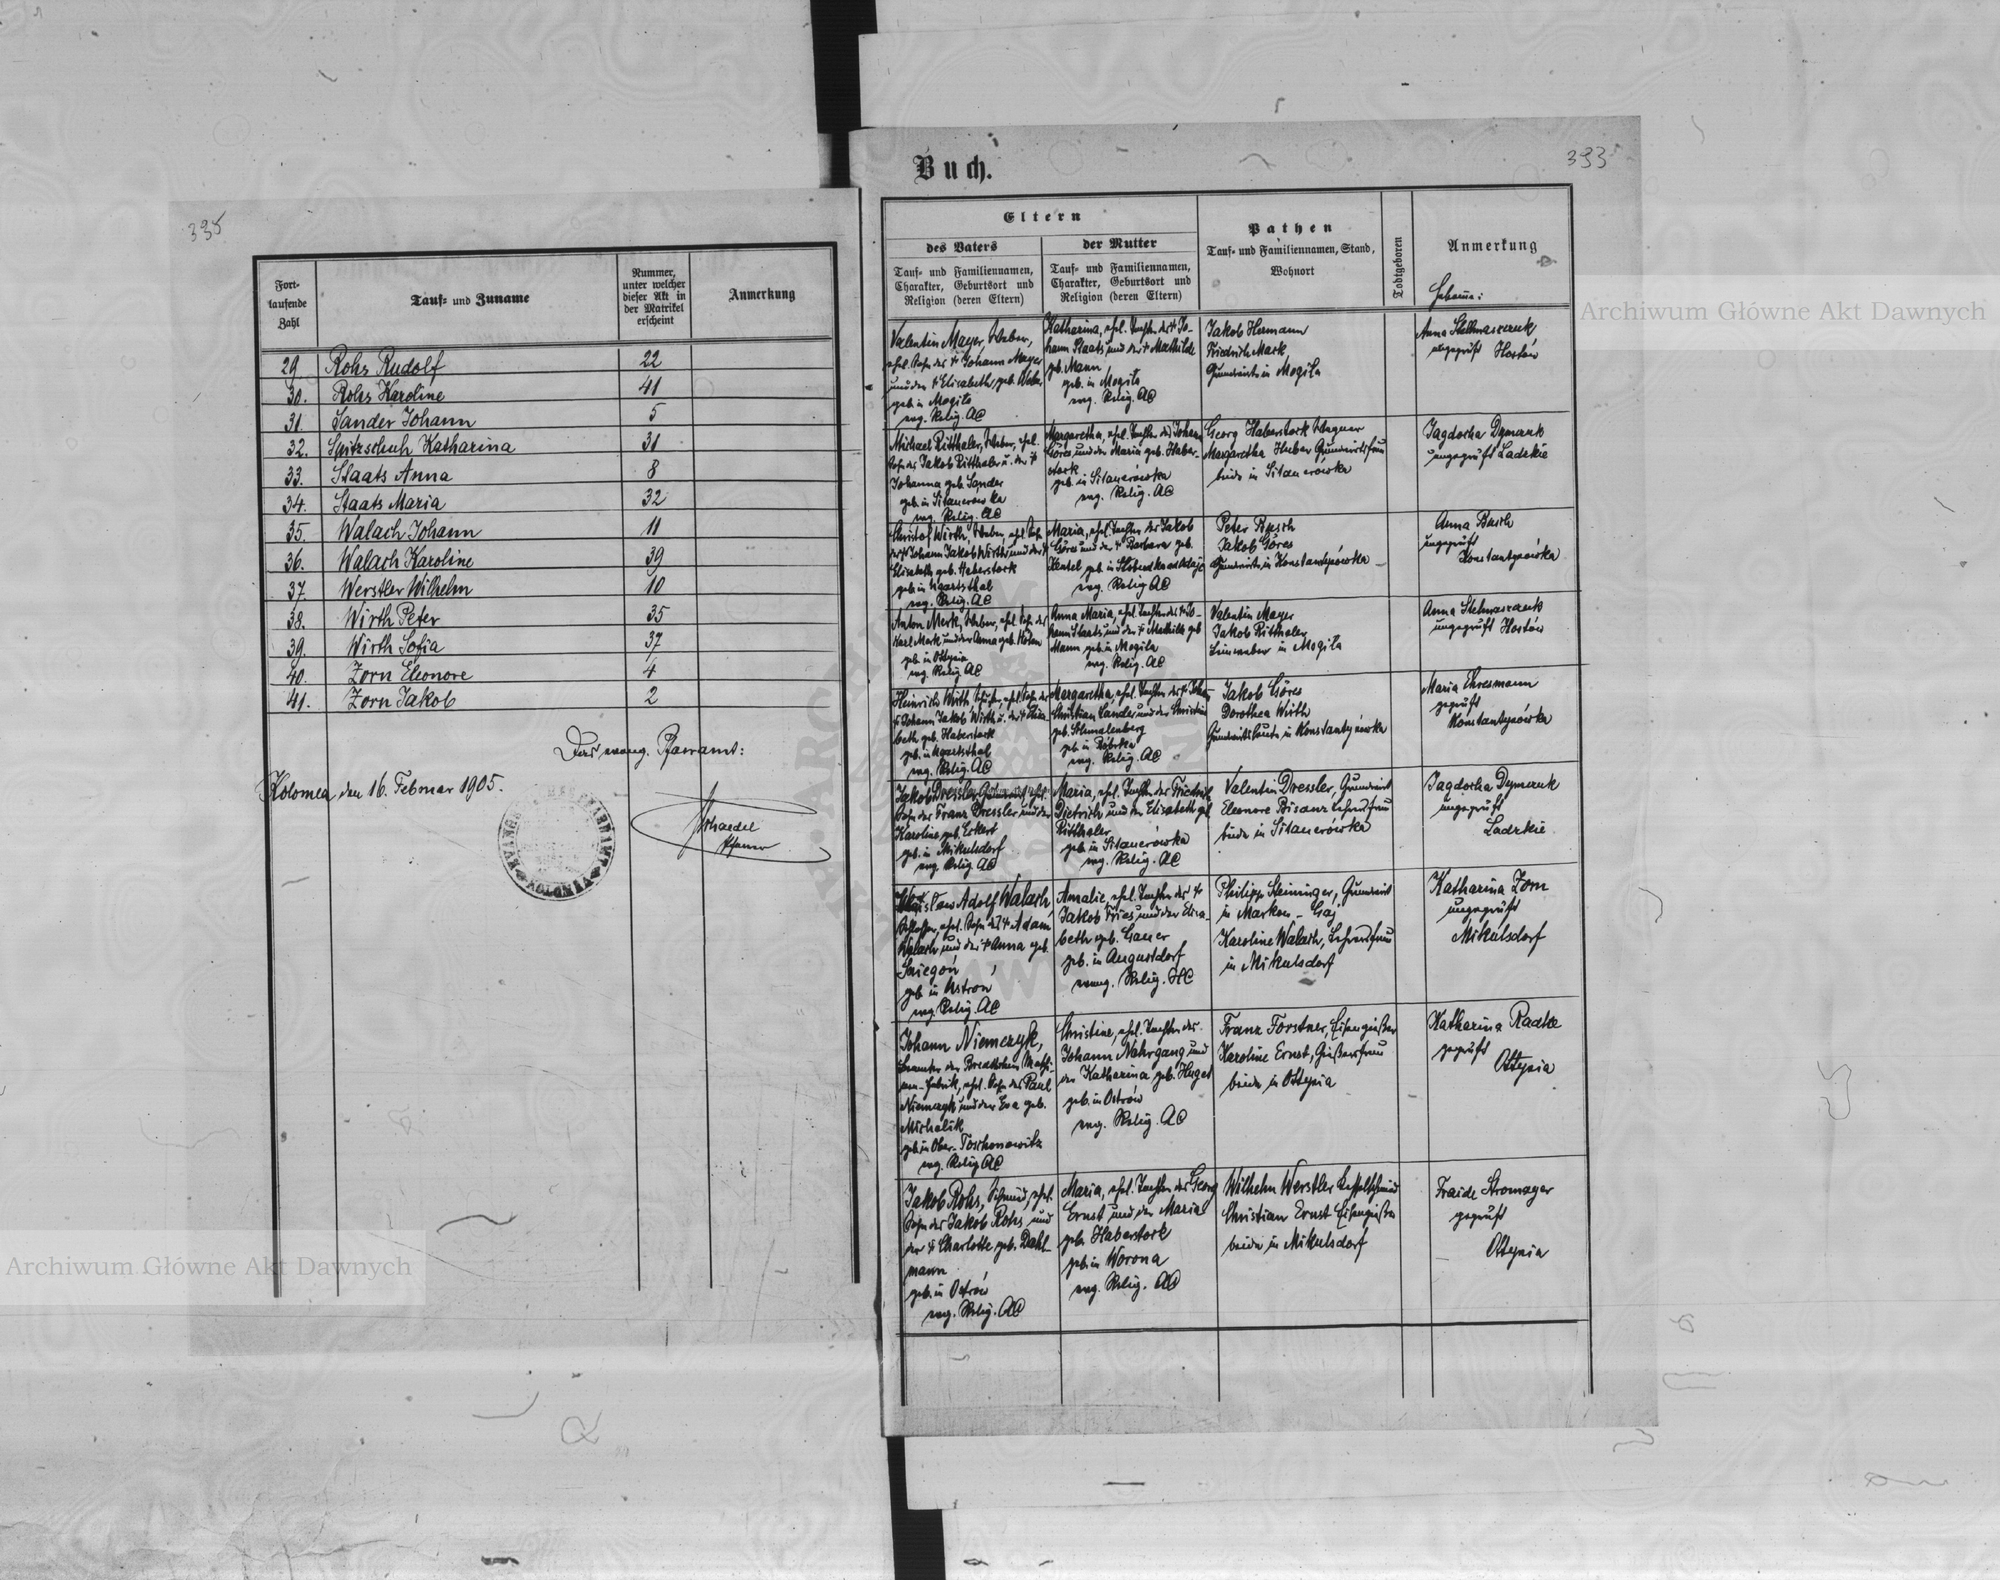 335
Fort-
laufende
Zahl
Tauf= und Zuname
Nummer,
unter welcher
dieser Akt in
der Matrikel
erscheint
Anmerkung
29 Rohs Rudolf 22
30. Rohs Karoline 41
31. Sander Johann 5
32. Spitzschuh Katharina 31
33. Staats Anna 8
34. Staats Maria 32
35. Walach Johann 11
36. Walach Karoline 39
37. Werstler Wilhelm 10
38. Wirth Peter 35
39. Wirth Sofia 37
40. Zorn Eleonore 4
41. Zorn Jakob 2
Das evang. Pfarramt:
Kolomea, den 16. Februar 1905.
Pfarrer
Archiwum Główne Akt Dawnych
Buch.
333
Eltern
des Vaters
Tauf= und Familiennamen,
Charakter, Geburtsort und
Religion (deren Eltern)
der Mutter
Tauf= und Familiennamen,
Charakter, Geburtsort und
Religion (deren Eltern)
Pathen
Tauf= und Familiennamen, Stand,
Wohnort
Todtgeboren
Anmerkung
Hebame:
Archiwum Główne Akt Dawnych
Valentin Mayer, Weber,
ehel. Sohn des † Johann Mayer
und der † Elisabeth, geb. Weber,
geb. in Mogila
evg. Relig. AC
Katharina, ehel. Tochter des † Jo-
hann Staats und der † Mathilde
geb. Mann
geb. in Mogila
evg. Relig. AC
Jakob Hermann
Friedrich Mark
Grundwirte in Mogila
Anna
ungeprüft Hostów
Michael Ritthaler, Weber, ehel.
Sohn des Jakob Ritthaler u. der †
Johanna geb. Sander
geb. in Sitauerowka
evg. Relig. AC
Margaretha, ehel. Tochter des Johann
Göres und der Maria geb. Haber-
stock
geb. in Sitauerówka
evg. Relig. AC
Georg Haberstock Wagner
Margaretha Huber Grundwirtsfrau
beide in Sitauerówka
Jagdocha Dymczuk
ungeprüft Ladzkie
Christof Wirth, Weber, ehel. Sohn
des † Johann Jakob Wirth und der †
Elisabeth geb. Haberstock
geb. in Ugartsthal
evg. Relig. AC
Maria, ehel. Tochter des Jakob
Göres und der † Barbara geb.
geb. in
evg. Relig AC
Peter Busch
Jakob Göres
Grundwirte in Konstantynówka
Anna Busch
ungeprüft
Konstantynówka
Anton Merk, Weber, ehel. Sohn des
Karl Merk und der Anna geb.
geb. in Ottynia
evg. Relig. AC
Anna Maria, ehel. Tochter des † Jo-
hann Staats und der † Mathilde geb
Mann geb. in Mogila
evg. Relig. AC
Valentin Mayer
Jakob Ritthaler
Leinweber in Mogila
Anna
ungeprüft Hostów
Heinrich Wirth, ehel. Sohn des
† Johann Jakob Wirth u. der † Elisa-
beth geb. Haberstock
geb. in Ugartsthal
evg. Relig. AC
Margaretha, ehel. Tochter des † Joha-
Christian Sander und der Christine
geb. Schmalenberg
geb. in Bóbrka
evg. Relig. AC
Jakob Göres
Dorothea Wirth
Grundwirtsleute in Konstantynówka
Maria Ehresmann
geprüft
Konstantynówka
Jakob Dressler Grundwirt, ehel.
Sohn des Franz Dressler und der
Karoline geb. Eckert
geb. in Mikulsdorf
evg. Relig. AC
Maria, ehel. Tochter des Friedrich
Dietrich und der Elisabeth geb
Ritthaler
geb. in Sitauerówka
evg. Relig. AC
Valentin Dressler, Grundwirt
Eleonore Bisanz Lehrersfrau
beide in Sitauerówka
Jagdocha Dymczuk
ungeprüft
Ladzkie
Adolf Walach,
Schlosser, ehel. Sohn des † Adam
Walach und der † Anna geb.
Sniegoń
geb. in Ustroń
evg. Relig. AC
Amalie, ehel. Tochter des †
Jakob Fries und der Elisa-
beth geb. Gauer
geb. in Augustdorf
evang. Relig. HC
Philipp Steininger, Grundwirt
in Markow-Gaj
Karoline Walach, Lehrersfrau
in Mikulsdorf
Katharina Zorn
ungeprüft
Mikulsdorf
Johann Niemczyk,
Beamter der Bredtschen Maschi-
nen-Fabrik, ehel. Sohn des Paul
Niemczyk und der Eva geb.
Michalik
geb. in Ober-Toschonowitz
evg. Relig AC
Christine, ehel. Tochter des
Johann Nahrgang und
der Katharina geb. Hugel
geb. in Ostrów
evg. Relig. AC
Franz Forstner, Eisengießer
Karoline Ernst, Gießersfrau
beide in Ottynia
Katharina Radke
geprüft
Ottynia
Jakob Rohs, Schmied, ehel.
Sohn des Jakob Rohs und
der † Charlotte geb. Dahl-
mann
geb. in Ostrów
evg. Relig. AC
Maria, ehel. Tochter des Georg
Ernst und der Maria
geb. Haberstock
geb. in Worona
evg. Relig. AC
Wilhelm Werstler Kesselschmied
Christian Ernst Eisengießer
beide in Mikulsdorf
Fraide Stromayer
geprüft
Ottynia